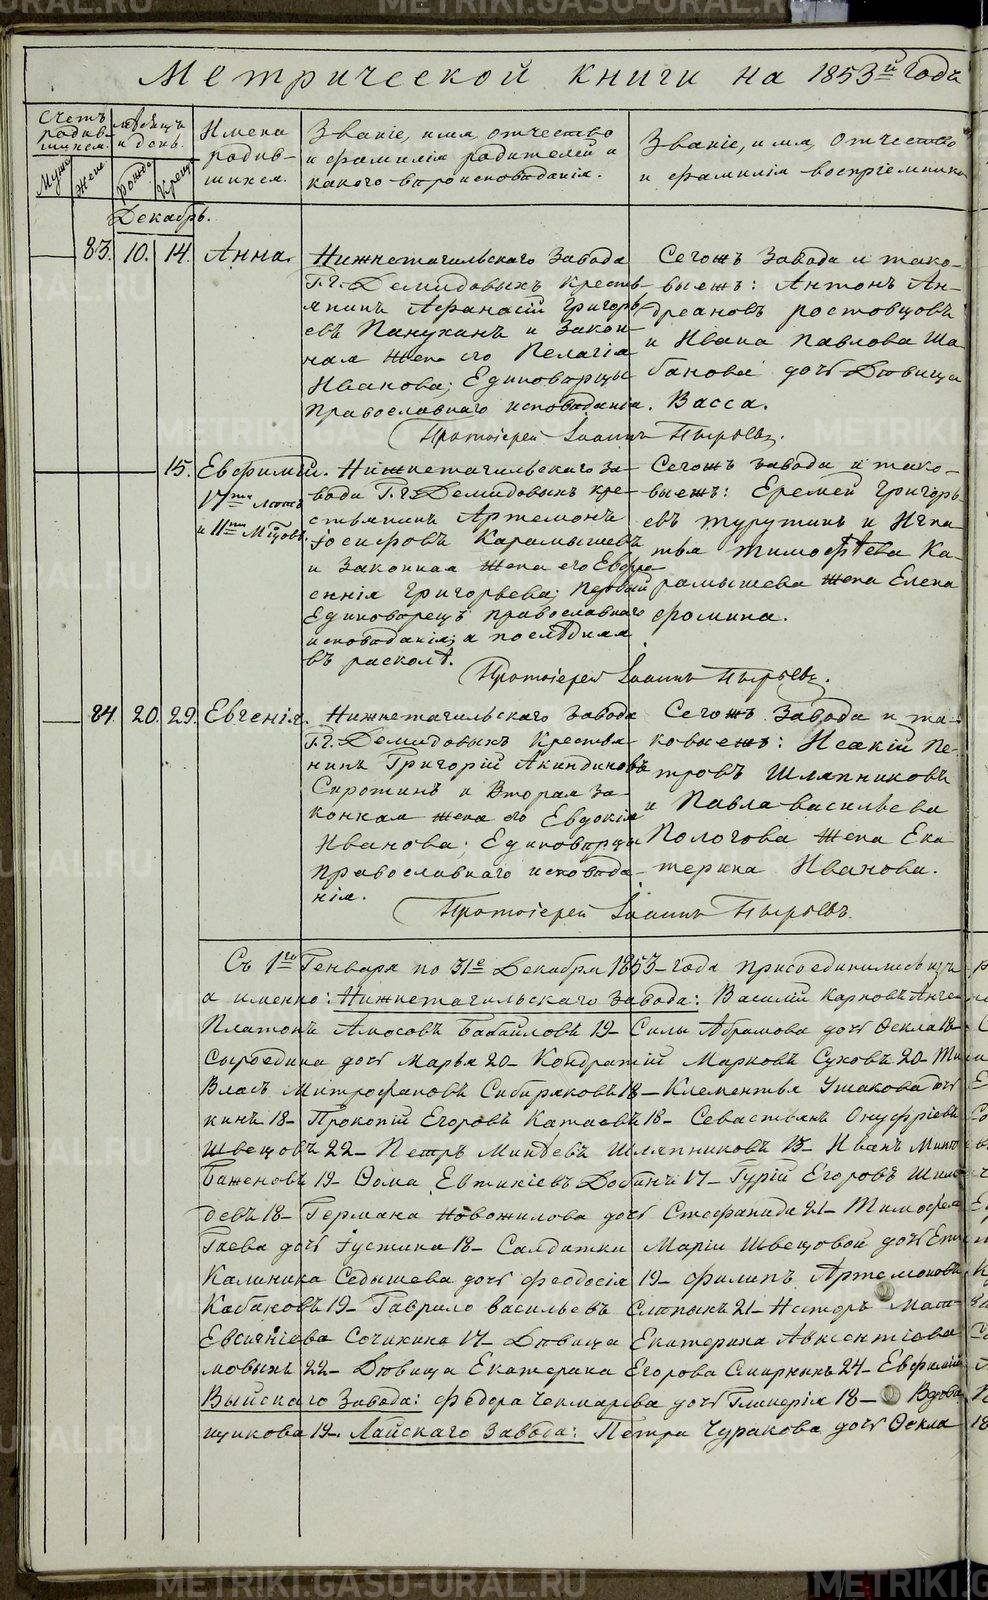 Метрической книги на 1853й годъ
Счетъ родившихся.
Муж. Жен.
Мѣсяцъ и день.
Рожд. Крещ.
Имена родившихся.
Званіе, имя, отчество
и фамилія родителей и
какого вѣроисповѣданія.
Званіе, имя, отчество
и фамилія воспріемника
Декабрь.
83. 10. 14. Анна.
Нижнетагильскаго завода
Г.г. Демидовыхъ крестья-
янинъ Афанасій Григорь-
евъ Панухинъ и закон-
ная жена его Пелагія
Иванова; Единовѣрцы
православнаго исповѣданія.
Сегожъ завода и тако-
выежъ: Антонъ Ан-
дреановъ Ростовцовъ
и Ивана Павлова Ша-
банова дочь дѣвица
Васса.
Протоіерей Іоаннъ Пырьевъ.
15. Евфимій.
17ти лѣтъ
и 11ти Мѣсцовъ.
Нижнетагильскаго за-
вода Г.г. Демидовыхъ кре-
стьянинъ Артемонъ
Іосифовъ Карамышевъ
и законная жена его Евфра-
сенія Григорьева; первый
Единовѣрецъ православнаго
исповѣданія; а послѣдняя
въ расколѣ.
Сегожъ завода и тако-
выежъ: Еремей Григорь-
евъ Турутинъ и Игна-
тья Тимофѣева Ка-
рамышева жена Елена
Фомина.
Протоіерей Іоаннъ Пырьевъ.
84. 20. 29. Евгенія.
Нижнетагильскаго завода
Г.г. Демидовыхъ крестья-
нинъ Григорій Акиндиновъ
Сиротинъ и вторая за-
конная жена его Евдокія
Иванова; Единовѣрцы
православнаго исповѣда-
нія.
Сегожъ завода и та-
ковыежъ: Исакій Пе-
тровъ Шляпниковъ
и Павла Васильева
Пологова жена Ека-
терина Иванова.
Протоіерей Іоаннъ Пырьевъ.
Съ 1го Генваря по 31е Декабря 1853 года присоединились изъ
а именно: Нижнетагильскаго завода: Василій Карповъ
Платонъ Амосовъ Бабайловъ 19 – Силы Абрамова дочь Ѳекла 18 –
Сыроедина дочь Марья 20 – Кондратій Марковъ Суховъ 20 –
Власъ Митрофановъ Сибиряковъ 18 – Клементья Ушакова дочь
кинъ 18 – Прокопій Егоровъ Катаевъ 18 – Севастьянъ Онуфріевъ
Швецовъ 22 – Петръ Минѣевъ Шляпниковъ 15 – Иванъ
Баженовъ 19 – Ѳома Евтихіевъ Добинъ 17 – Гурій Егоровъ
девъ 18 – Германа Новожилова дочь Стефанида 21 – Тимофея
Гаева дочь Густина 18 – Салдатки Маріи Швецовой дочь
Калиника Седышева дочь Феодосія 19 – Филипъ Артемоновъ
Кабаковъ 19 – Гаврило Васильевъ Слѣпыхъ 21 – Несторъ
Евсигніева Сочихина 17 – Дѣвица Екатерина Авксентіева
мовыхъ 22 – Дѣвица Екатерина Егорова Смирныхъ 24 – Евфимій
Выйскаго завода: Федора Чекмарева дочь Гликерія 18 – Вдова
щикова 19 – Лайскаго завода: Петра Чуракова дочь Ѳекла
METRIKI.GASO-URAL.RU